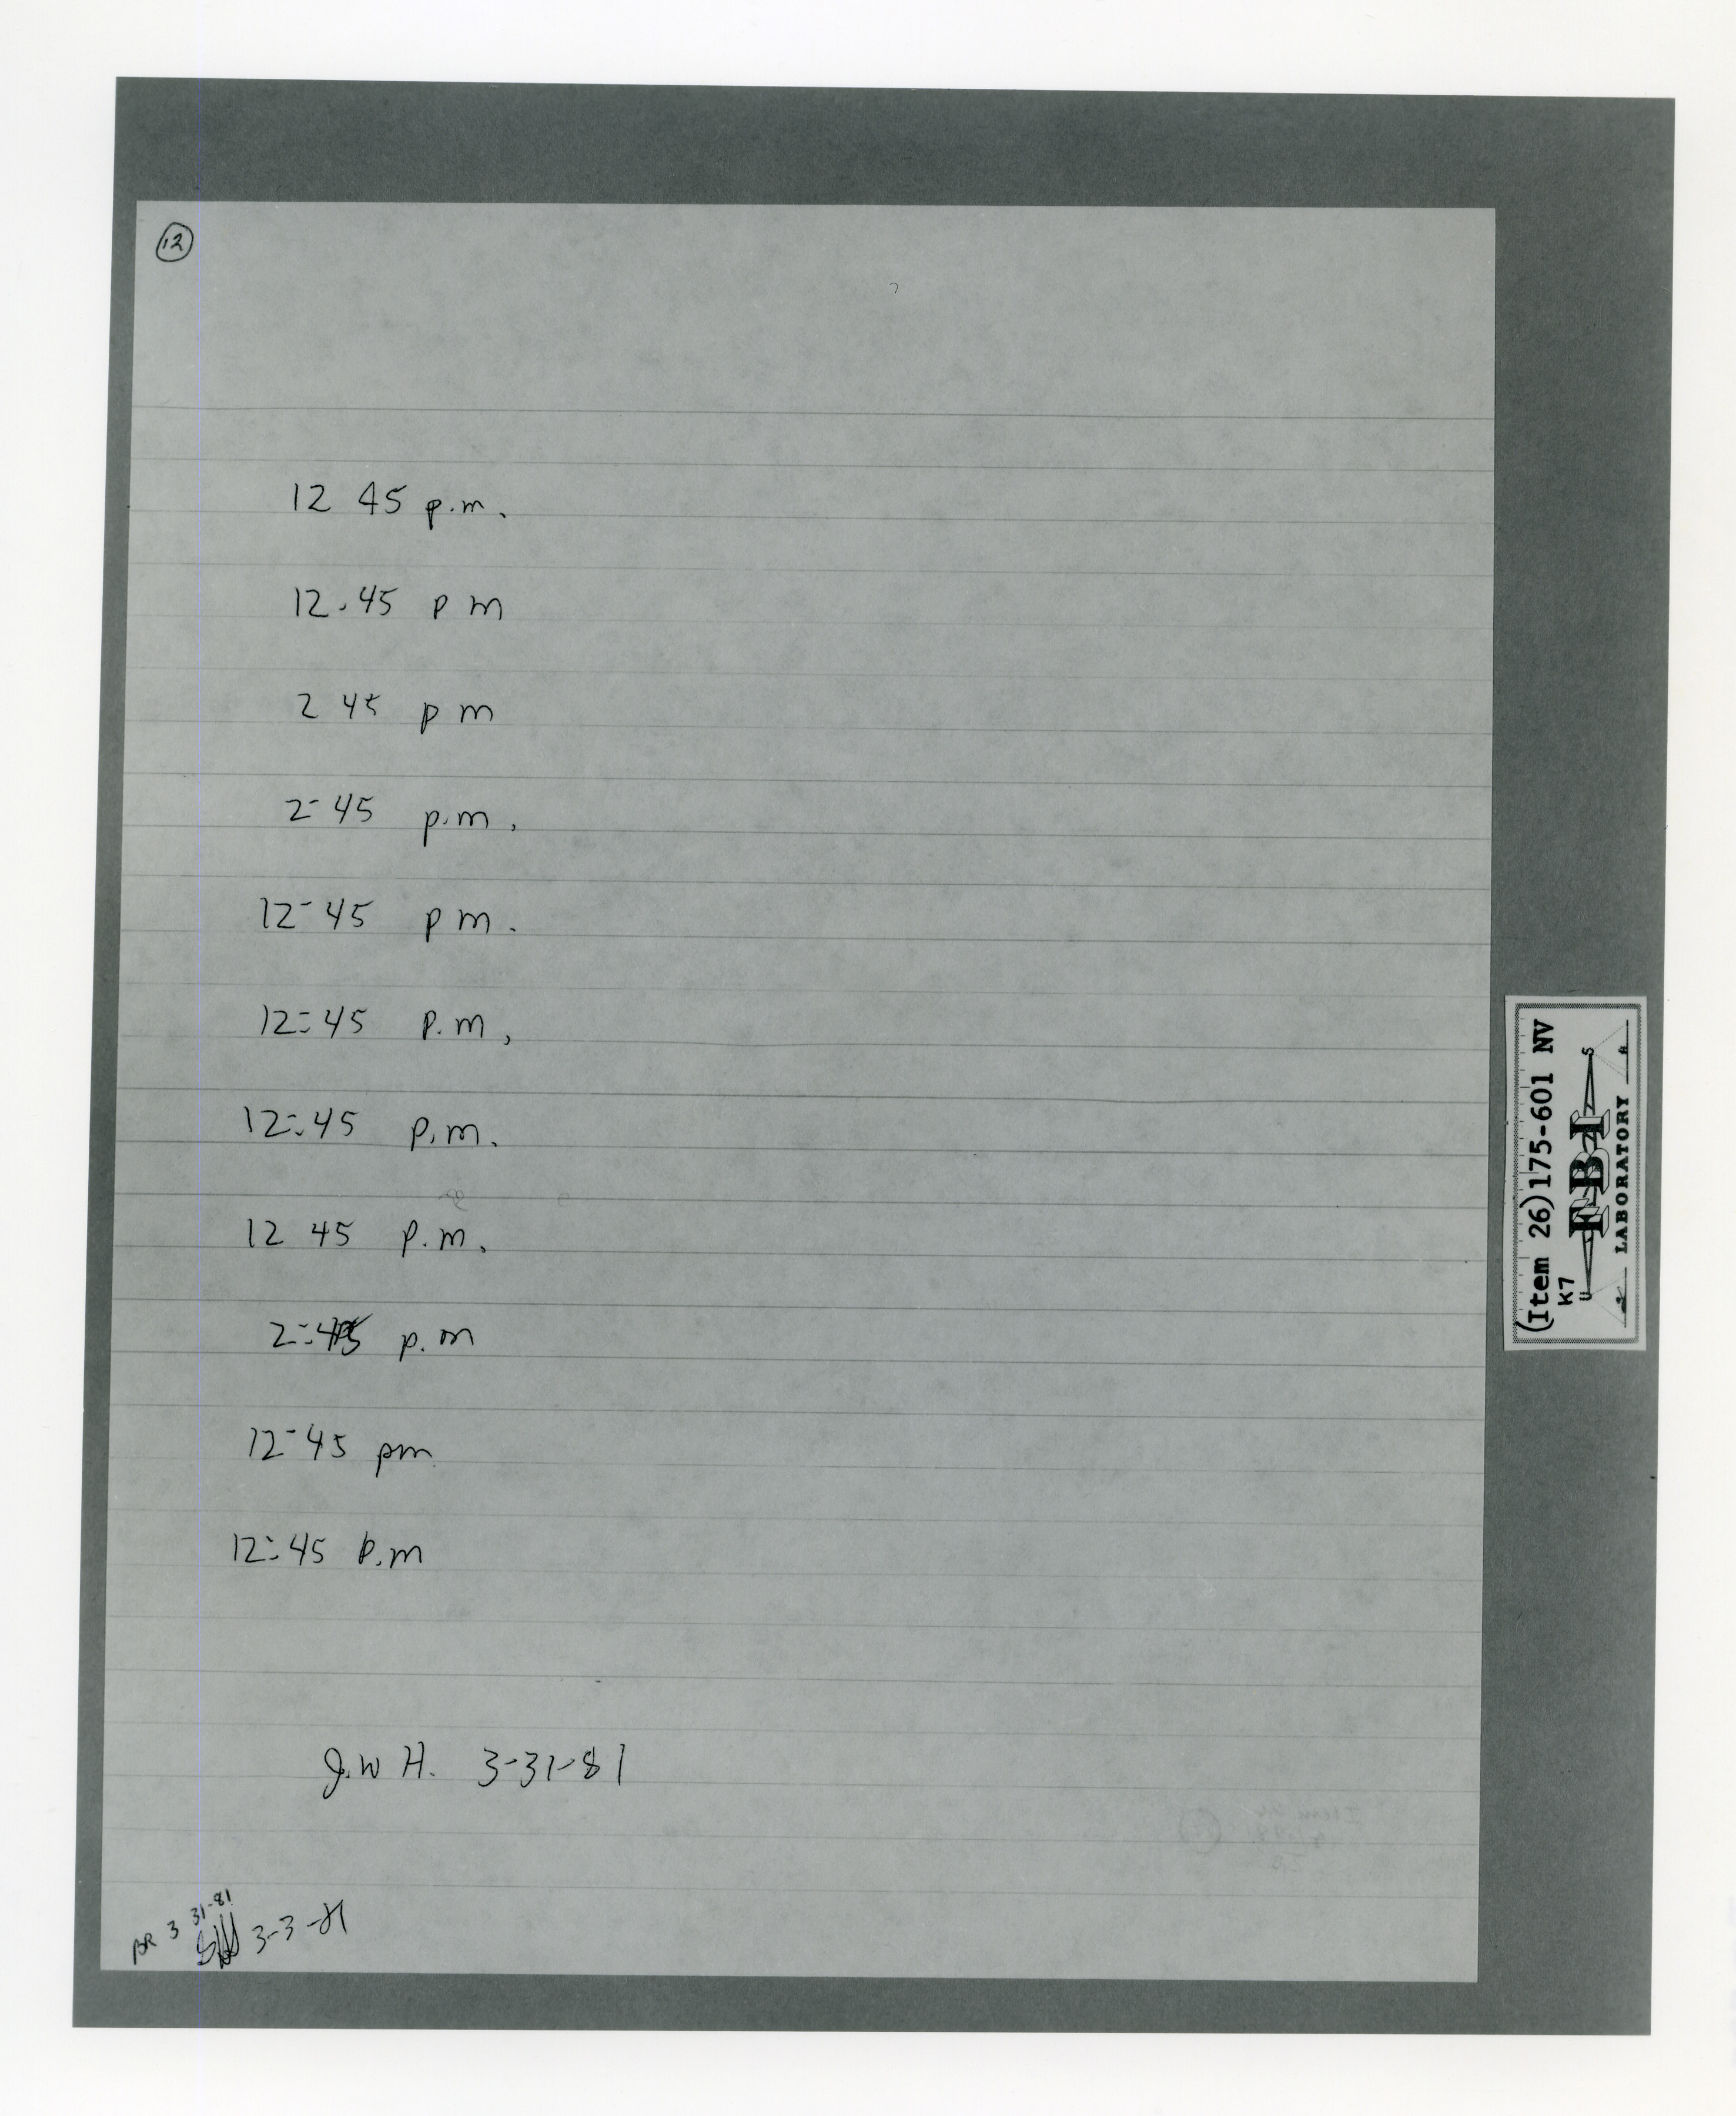 12
12 45 p.m.
12.45 p m
2 45 p m
2-45 p.m.
12-45 p m.
12:45 p.m,
12:45 p.m.
12 45 p.m.
2:45 p.m
12-45 pm
12:45 P.m
J.W H. 3-31-81
BR 3 31-81
3-3 -81
(Item 26)175-601 NV
K7
U S
FBI
LABORATORY